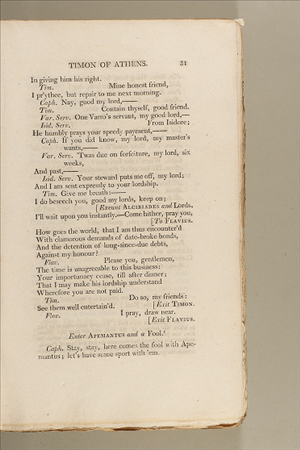 TIMON OF ATHENS. 31
In giving him his right.
Tim. Mine honest friend,
I pr'ythee, but repair to me next morning.
Caph. Nay, good my lord,——
Tim. Contain thyself, good friend.
Var. Serv. One Varro's servant, my good lord,—
Isid. Serv. From Isidore;
He humbly prays your speedy payment,——
Caph. If you did know, my lord, my master's
wants,——
Var. Serv. 'Twas due on forfeiture, my lord, six
weeks,
And past,——
Isid. Serv. Your steward puts me off, my lord;
And I am sent expressly to your lordship.
Tim. Give me breath:——
I do beseech you, good my lords, keep on;
[Exeunt ALCIBIADES and Lords.
I'll wait upon you instantly.—Come hither, pray you,
[To FLAVIUS.
How goes the world, that I am thus encounter'd
With clamorous demands of date-broke bonds,
And the detention of long-since-due debts,
Against my honour?
Flav. Please you, gentlemen,
The time is unagreeable to this business:
Your importunacy cease, till after dinner;
That I may make his lordship understand
Wherefore you are not paid.
Tim. Do so, my friends:
See them well entertain'd. [Exit TIMON.
Flav. I pray, draw near.
[Exit FLAVIUS.
Enter APEMANTUS and a Fool.
Caph. Stay, stay, here comes the fool with Ape-
mantus; let's have some sport with 'em.